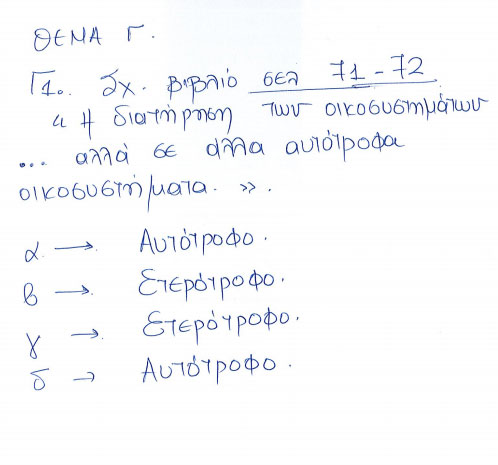 ΘΕΜΑ Γ.
Γ1. Σχ. βιβλιό σελ 71-72
« Η διατήρηση των οικοσυστημάτων
... αλλά σε άλλα αυτότροφα
οικοσυστήματα. ».
α → Αυτότροφο.
β → Ετερότροφο.
γ → Ετερότροφο.
δ → Αυτότροφο.